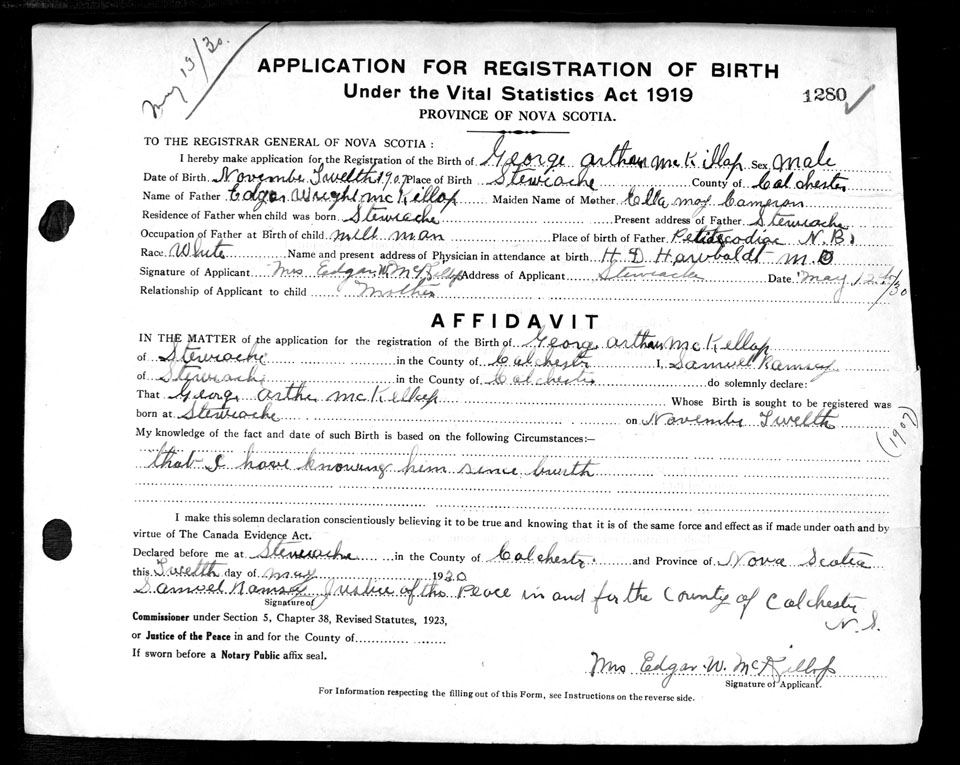 May 13/30.
APPLICATION FOR REGISTRATION OF BIRTH
Under the Vital Statistics Act 1919
1280
PROVINCE OF NOVA SCOTIA.
TO THE REGISTRAR GENERAL OF NOVA SCOTIA :
I hereby make application for the Registration of the Birth of George Arthur McKillop Sex Male
Date of Birth Novembe Twelth 1907 Place of Birth Stewiacke County of Colchester
Name of Father Edgar Wright McKillop Maiden Name of Mother Ella May Cameron
Residence of Father when child was born Stewiacke Present address of Father Stewiacke
Occupation of Father at Birth of child mill man Place of birth of Father Petitcodiac N.B.
Race White Name and present address of Physician in attendance at birth H. D. M.D
Signature of Applicant Mrs. Edgar W. McKillop Address of Applicant Stewiacke Date May 12th/30
Relationship of Applicant to child Mother
AFFIDAVIT
IN THE MATTER of the application for the registration of the Birth of George Arthur McKillop
of Stewiacke in the County of Colchester I, Samuel Ramsey
of Stewiacke in the County of Colchester do solemnly declare:
That George Arthur McKillop Whose Birth is sought to be registered was
born at Stewiacke on Novembe Twelth (1907)
My knowledge of the fact and date of such Birth is based on the following Circumstances:—
that I have knowing him since burth
I make this solemn declaration conscientiously believing it to be true and knowing that it is of the same force and effect as if made under oath and by
virtue of The Canada Evidence Act.
Declared before me at Stewiacke in the County of Colchester. and Province of Nova Scotia
this Twelth day of May 1930
Samuel Ramsey Justice of the Peace in and for the County of Colchester
N. S.
Signature of
Commissioner under Section 5, Chapter 38, Revised Statutes, 1923,
or Justice of the Peace in and for the County of
If sworn before a Notary Public affix seal.
Mrs Edgar W. McKillop
Signature of Applicant.
For Information respecting the filling out of this Form, see Instructions on the reverse side.